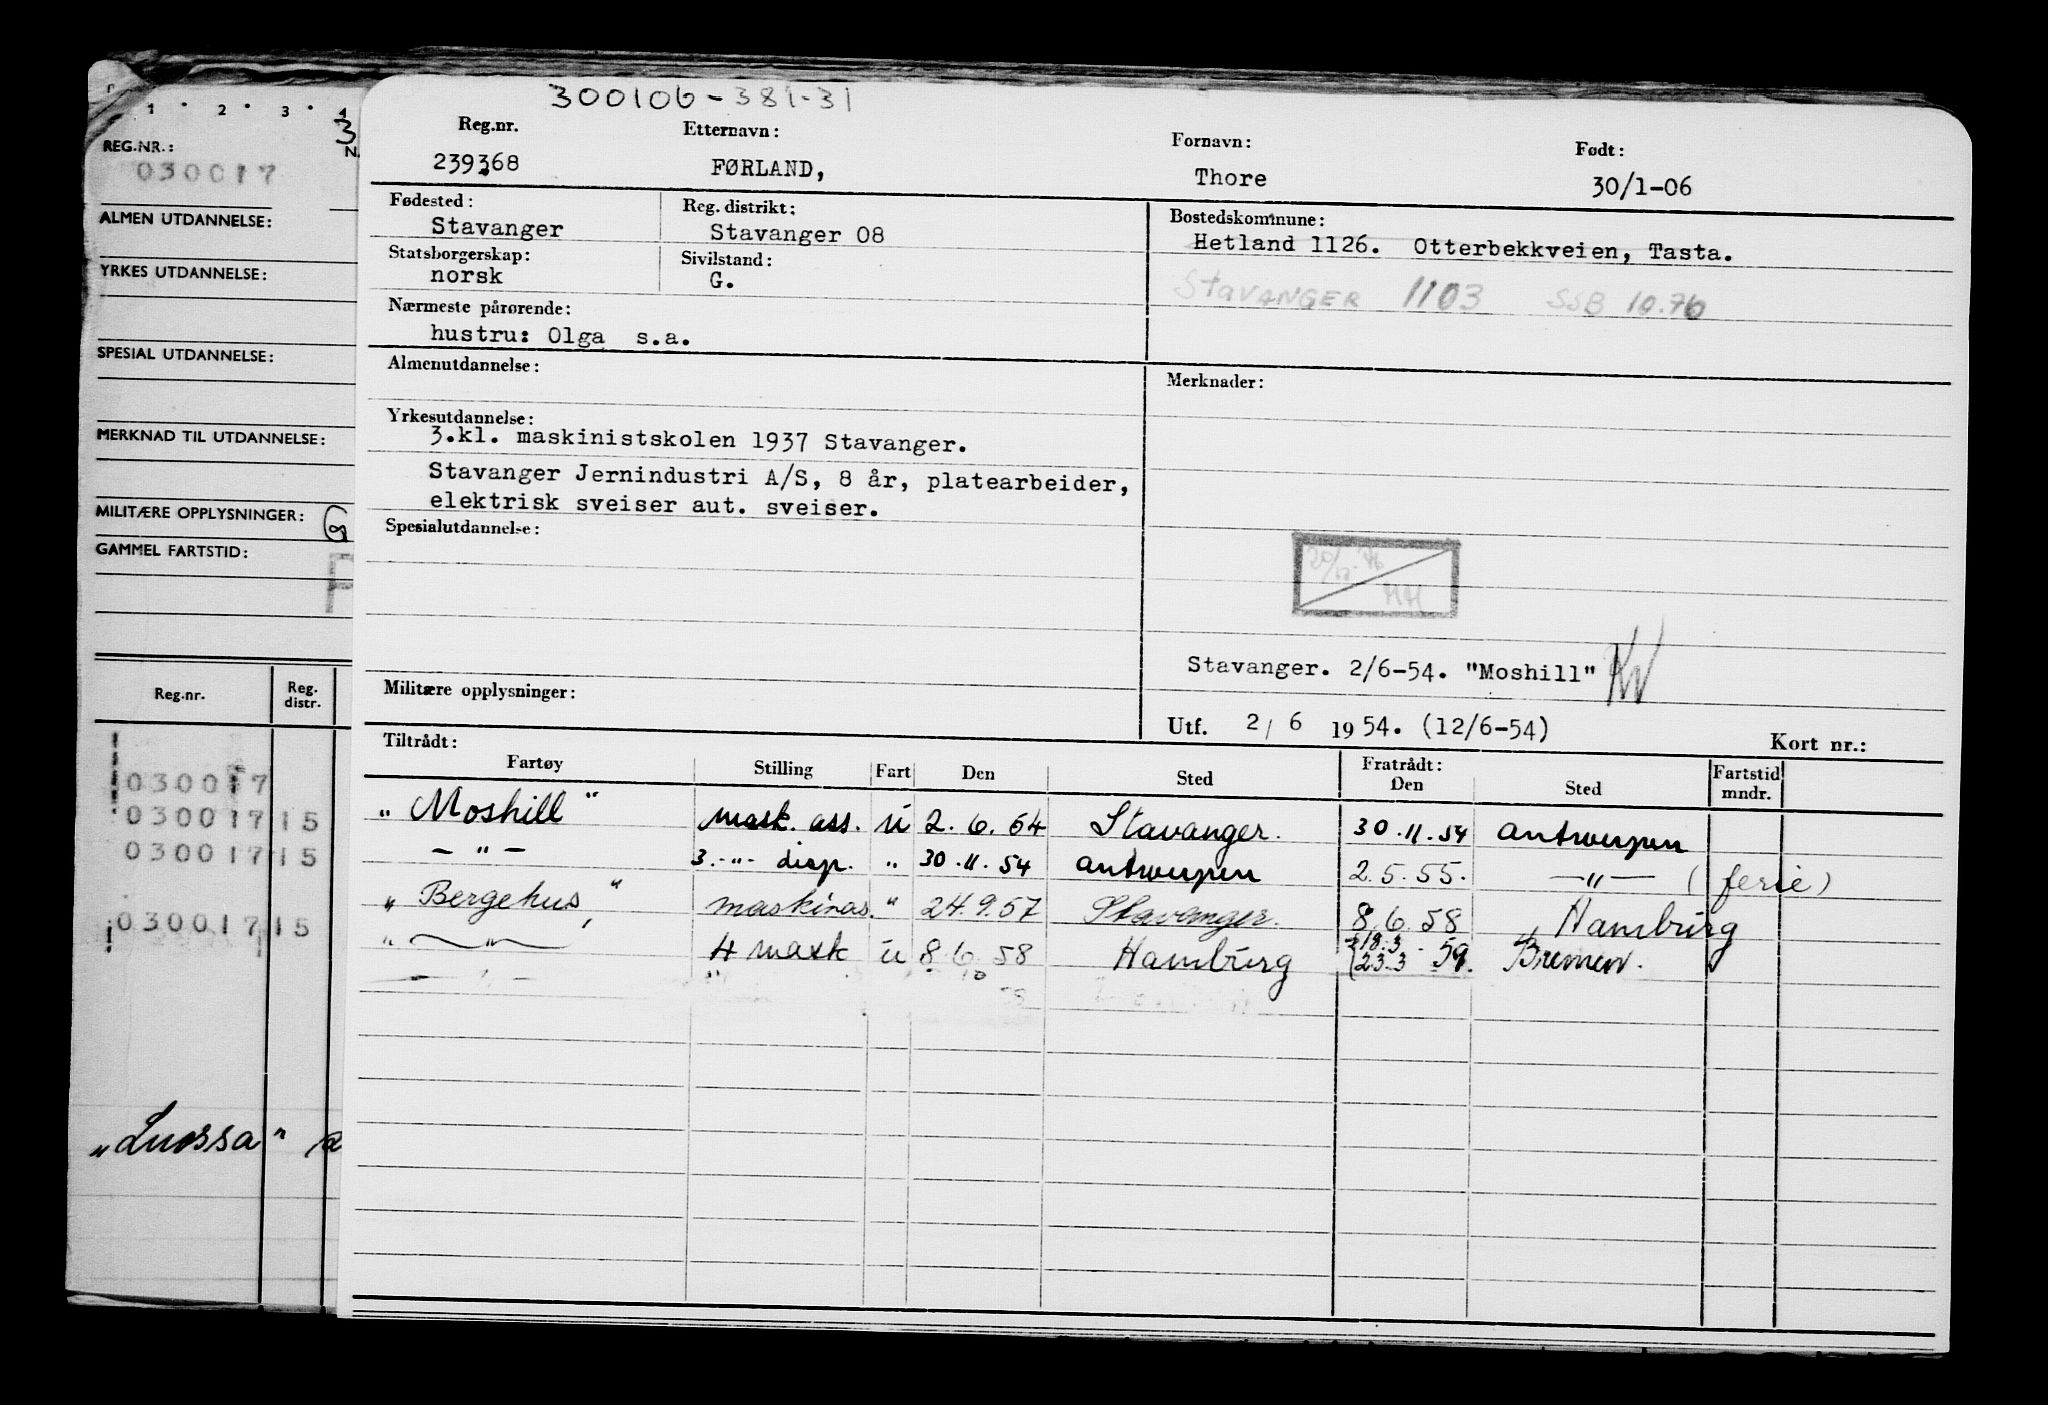 300106-381-31
1 2 3 4
REG.NR.:
030017
ALMEN UTDANNELSE:
YRKES UTDANNELSE:
SPESIAL UTDANNELSE:
MERKNAD TIL UTDANNELSE:
MILITÆRE OPPLYSNINGER: G
GAMMEL FARTSTID:
Reg.nr. Reg. distr.
030017
030017 15
030017 15
030017 15
"Luossa"
Reg.nr. Etternavn: Fornavn: Født:
239368 FØRLAND, Thore 30/1-06
Fødested: Reg. distrikt: Bostedskommune:
Stavanger Stavanger 08 Hetland 1126. Otterbekkveien, Tasta.
Statsborgerskap: Sivilstand:
norsk G. Stavanger 1103 SSB 10.76
Nærmeste pårørende:
hustru: Olga s.a.
Almenutdannelse: Merknader:
Yrkesutdannelse:
3.kl. maskinistskolen 1937 Stavanger.
Stavanger Jernindustri A/S, 8 år, platearbeider,
elektrisk sveiser aut. sveiser.
Spesialutdannelse:
HH
Stavanger. 2/6-54. "Moshill" KW
Militære opplysninger:
Utf. 2/6 1954. (12/6-54) Kort nr.:
Tiltrådt: Fratrådt:
Fartøy Stilling Fart Den Sted Den Sted Fartstid mndr.
"Moshill" mask. ass. u 2.6.54 Stavanger. 30.11.54 Antwerpen
-"- 3.-"- disp. " 30.11.54 Antwerpen 2.5.55. -"- (ferie)
"Bergehus," maskinas. " 24.9.57 Stavanger. 8.6.58 Hamburg
"-"- 4 mask u 8.6.58 Hamburg 18.3 23.3.59. Bremen.